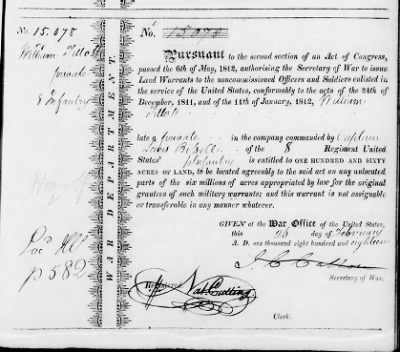 No. 15.078
William
private
8 Infantry
Rec'd
p 582
WAR DEPARTMENT.
No. 15078
Pursuant to the second section of an Act of Congress,
passed the 6th of May, 1812, authorising the Secretary of War to issue
Land Warrants to the noncommissioned Officers and Soldiers enlisted in
the service of the United States, conformably to the acts of the 24th of
December, 1811, and of the 11th of January, 1812, William
late a private in the company commanded by Captain
Louis of the 8 Regiment United
States' Infantry is entitled to ONE HUNDRED AND SIXTY
ACRES OF LAND, to be located agreeably to the said act on any unlocated
parts of the six millions of acres appropriated by law for the original
grantees of such military warrants; and this warrant is not assignable
or transferable in any manner whatever.
GIVEN at the War Office of the United States,
this 26 day of February
A. D. one thousand eight hundred and eighteen
J. C. Calhoun
Secretary of War.
Registered Nat Cutting
Clerk.